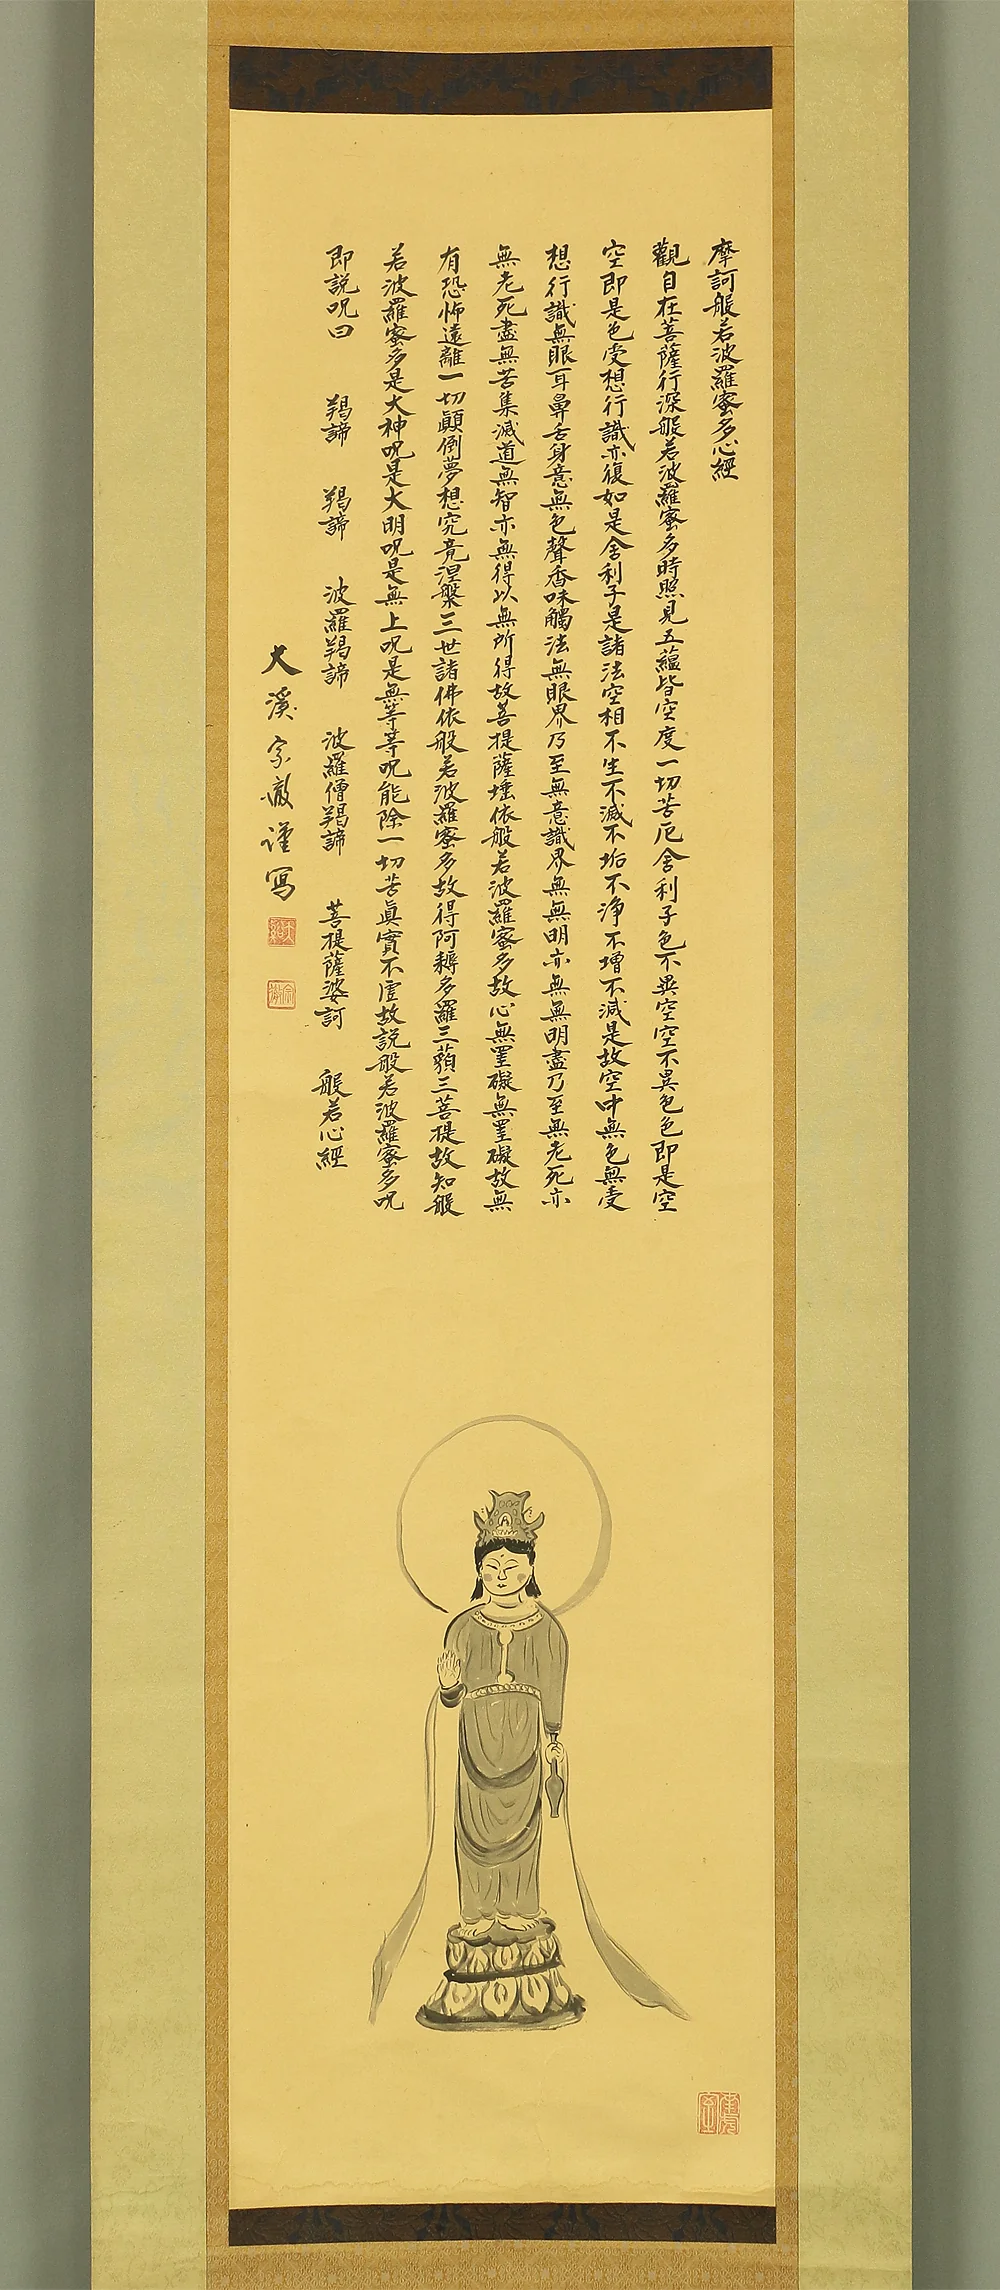 摩訶般若波羅蜜多心經
觀自在菩薩行深般若波羅蜜多時照見五蘊皆空度一切苦厄舍利子色不異空空不異色色即是空
空即是色受想行識亦復如是舍利子是諸法空相不生不滅不垢不浄不増不減是故空中無色無受
想行識無眼耳鼻舌身意無色聲香味觸法無眼界乃至無意識界無無明亦無無明盡乃至無老死亦
無老死盡無苦集滅道無智亦無得以無所得故菩提薩埵依般若波羅蜜多故心無罣礙無罣礙故無
有恐怖遠離一切顚倒夢想究竟涅槃三世諸佛依般若波羅蜜多故得阿耨多羅三藐三菩提故知般
若波羅蜜多是大神呪是大明呪是無上呪是無等等呪能除一切苦眞實不虚故説般若波羅蜜多呪
即説呪曰 羯諦 羯諦 波羅羯諦 波羅僧羯諦 菩提薩婆訶 般若心經
大溪宗徹謹寫